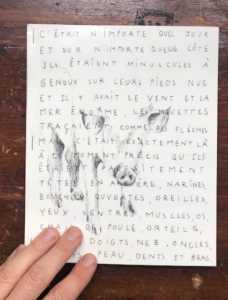 C'ÉTAIT N'IMPORTE QUEL JOUR
ET SUR N'IMPORTE QUELLE CÔTE
ILS ÉTAIENT MINUSCULES À
GENOUX SUR LEURS PIEDS NUS
ET IL Y AVAIT LE VENT ET LA
MER ÉNORME, LES MOUETTES
TRAÇAIENT COMME DES FLÈCHES
MAIS C'ÉTAIT EXACTEMENT LÀ
À CE MOMENT PRÉCIS QU'ILS
PARFAITEMENT
TÊTE EN ARRIÈRE, NARINES,
BOUCHES OUVERTES, OREILLES,
YEUX, VENTRES, MUSCLES, OS,
CHAIR DE POULE, ORTEILS,
DOIGTS, NEZ, ONGLES,
PEAU, DENTS ET BRAS